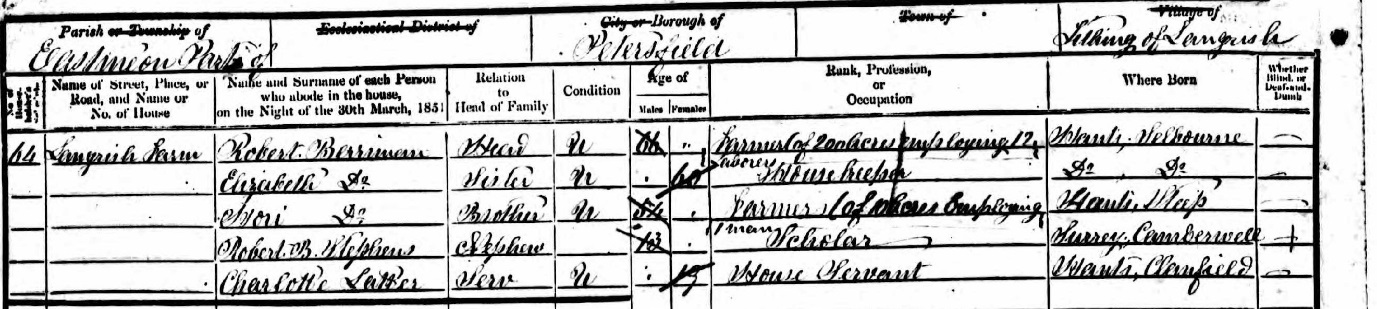 Parish or Township of
Ecclesiastical District of
City or Borough of
Town of
Village of
Eastmeon Part of
Petersfield
Tithing of Langrish
No. of House
Name of Street, Place, or Road, and Name or No. of House
Name and Surname of each Person who abode in the house, on the Night of the 30th March, 1851
Relation to Head of Family
Condition
Age of
Males Females
Rank, Profession, or Occupation
Where Born
Whether Blind, or Deaf-and-Dumb
64 Langrish Farm Robert Berriman Head U 66 " Farmer of 200 acres employing 12 laborers Hants, Selbourne —
Elizabeth Do Sister U 60 Housekeeper Do Do —
Do Brother U 54 Farmer of acres Employing 1 man Hants, Steep —
Robert B. Stephens Nephew 13 Scholar Surrey, Camberwell
Charlotte Serv U 19 House Servant Hants, Clanfield —